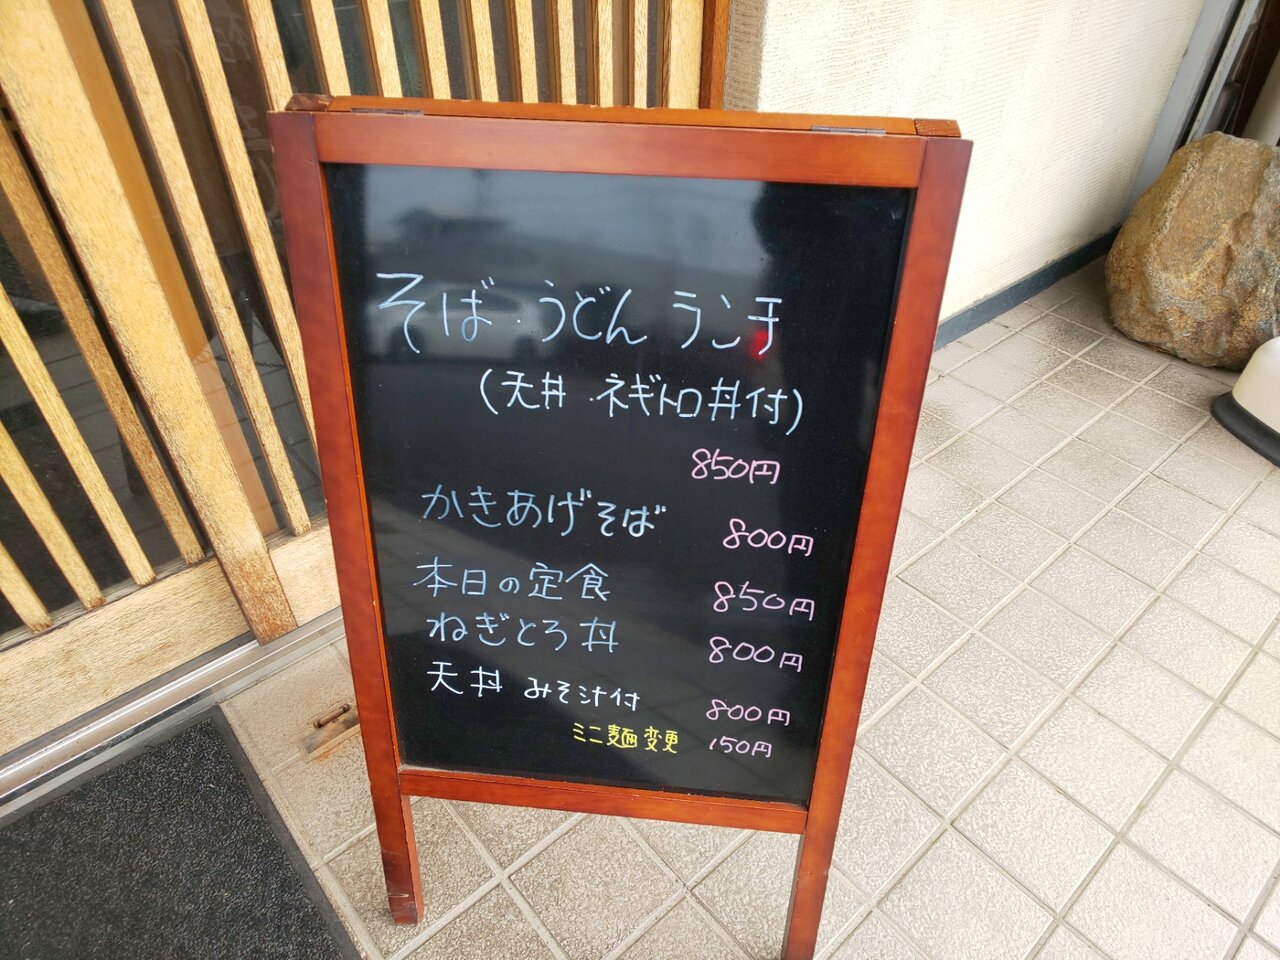 そば・うどん ランチ
(天丼・ネギトロ丼付)
850円
かきあげそば 800円
本日の定食 850円
ねぎとろ丼 800円
天丼 みそ汁付 800円
ミニ麺変更 150円